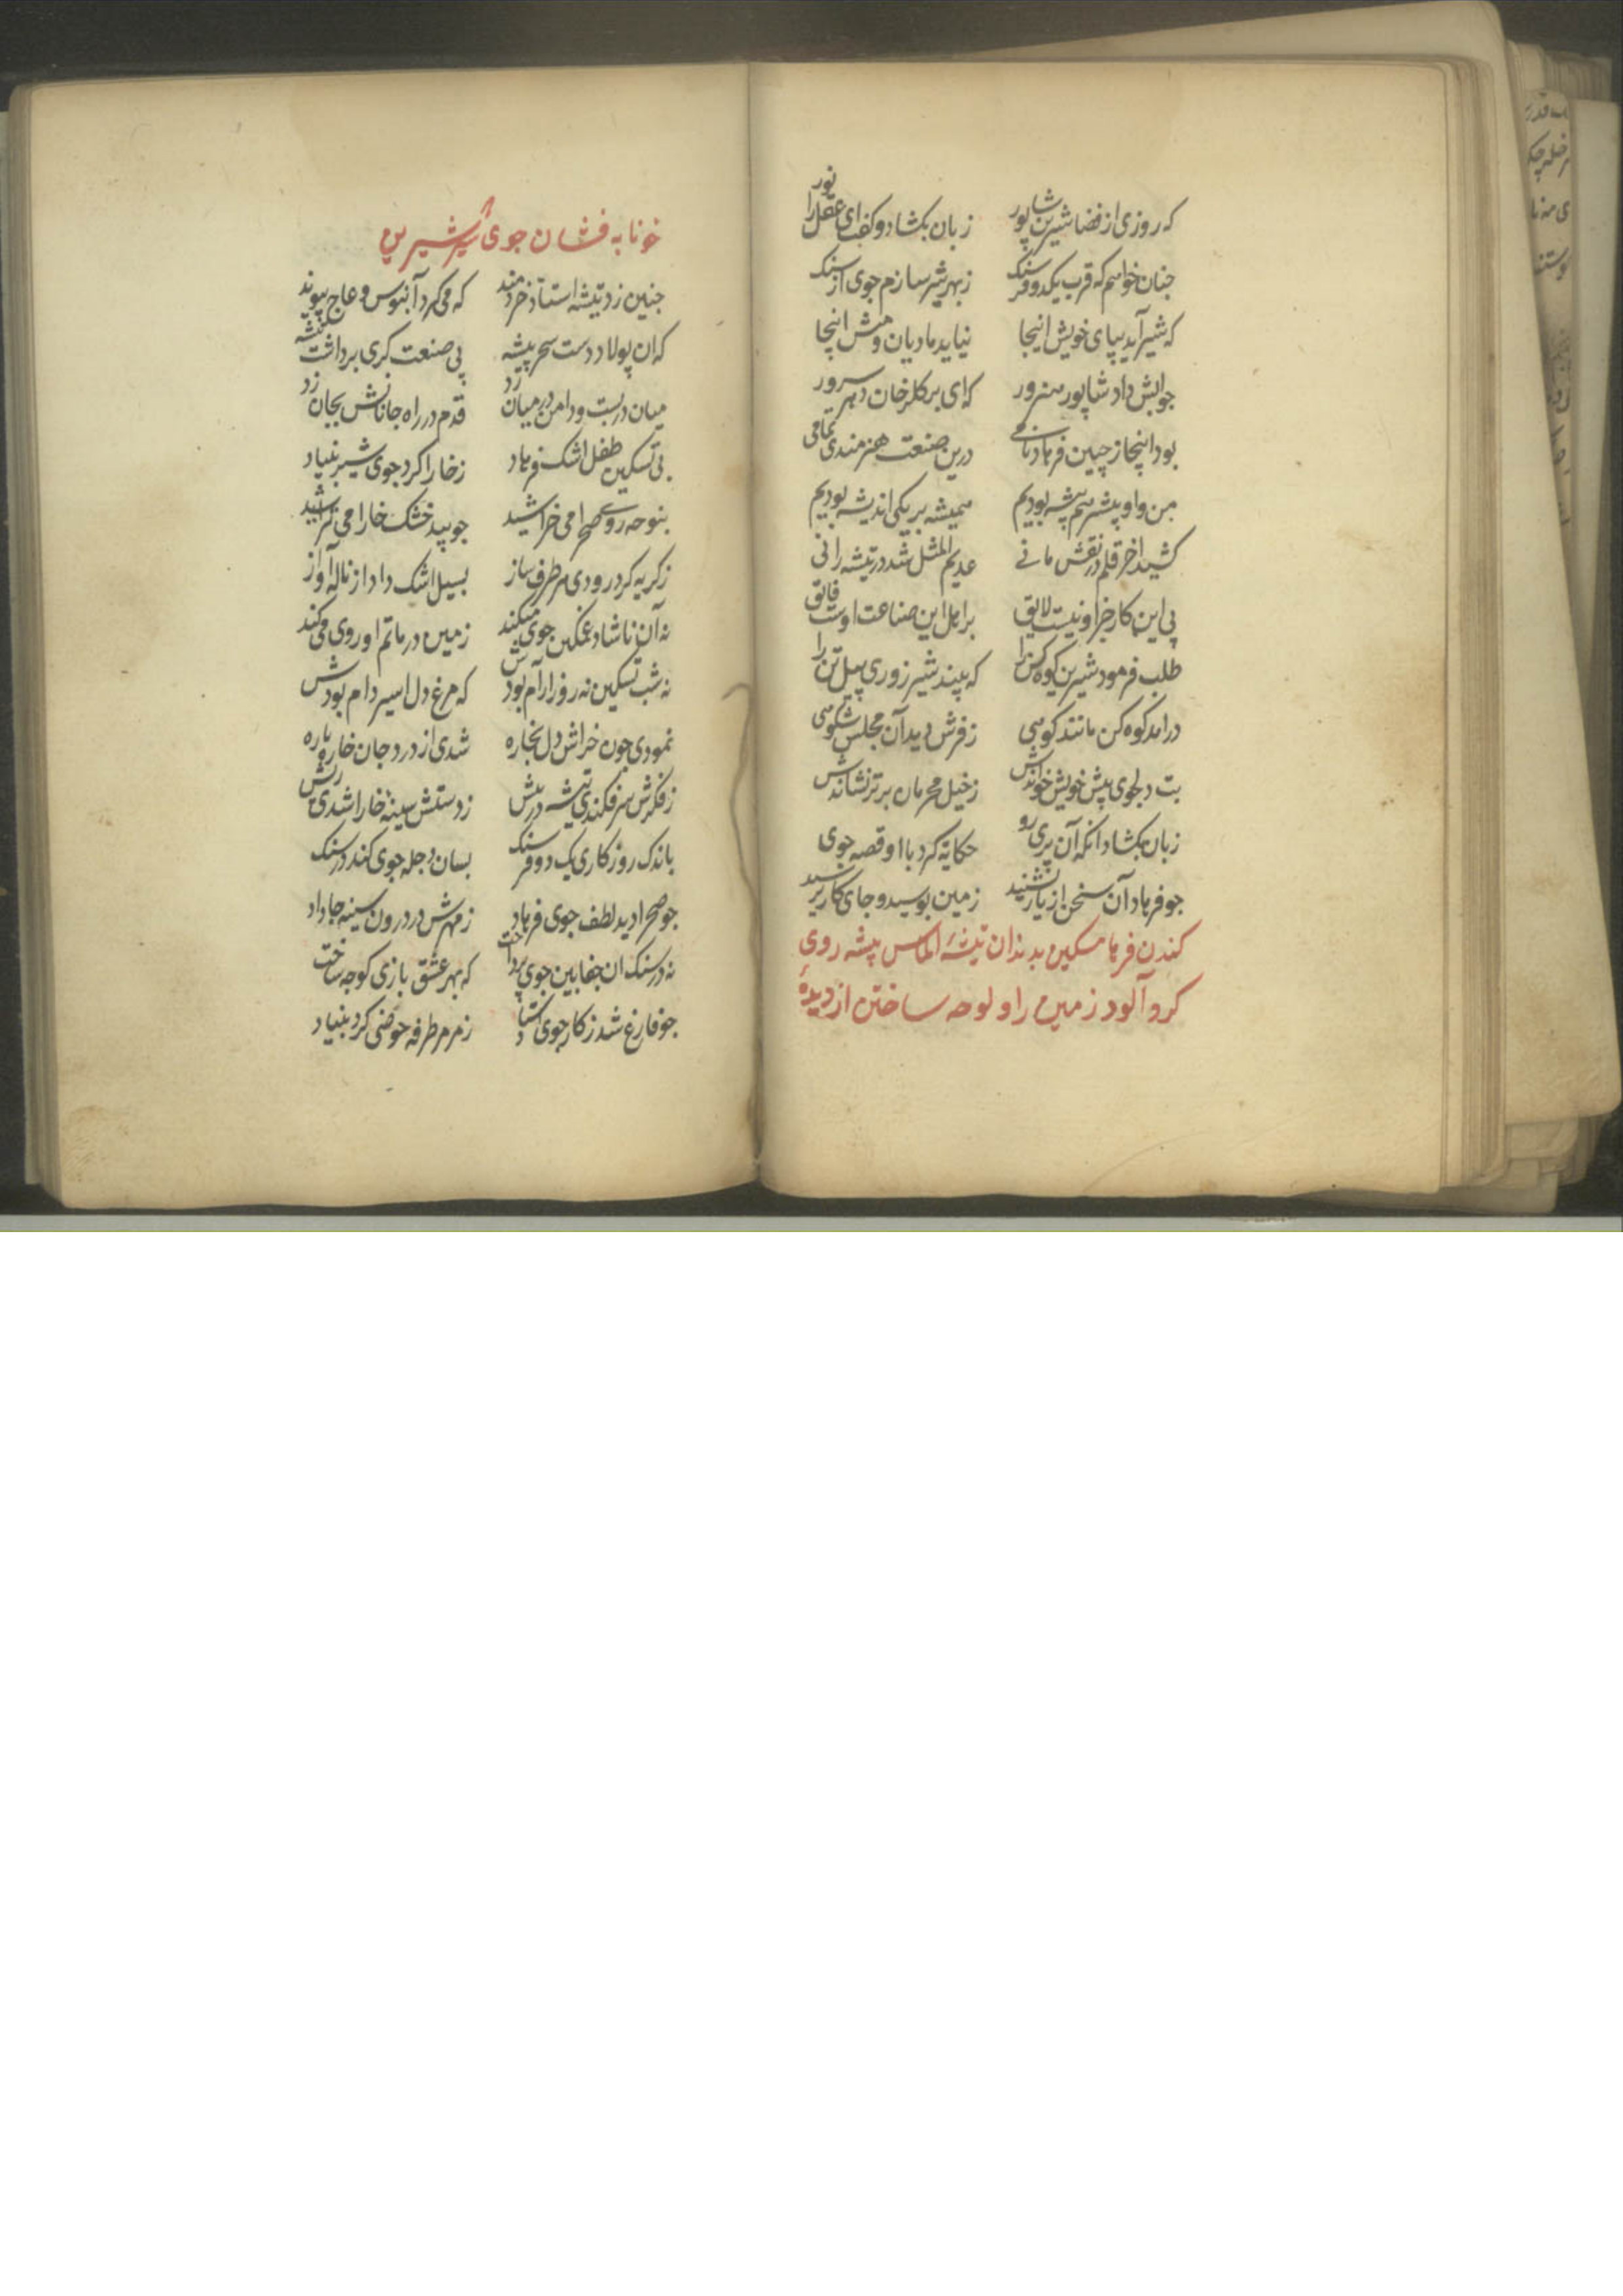 که روزی از قضا شیرین شاپور زبان بکشاد و کفت ای عقل را نور
جنان خواهم که قرب یکدو فرسنک زبهر شیر سازم جوی از سنک
که شیر آید بپای خویش اینجا نیاید مادیان و میش اینجا
جوابش داد شاپور هنرور که ای بر کلرخان دهر سرور
بود اینجا ز چین فرهاد نامی درین صنعت هنرمندی تمامی
من و او پیشتر هم پیشه بودیم همیشه بر یکی اندیشه بودیم
کشید اخر قلم در نقش مانی عدیم المثل شد در تیشه رانی
پی این کار جز او نیست لایق بر اهل این صناعت اوست فایق
طلب فرمود شیرین کوه کن را که بیند شیر زوری پیل تن را
درامد کوه کن مانند کوهی ز فرش دید آن مجلس شکوهی
بت دلجوی پیش خویش خواندش ز خیل محرمان برتر نشاندش
زبان بکشاد انکه آن پری رو حکایة کرد با او قصه جوی
جو فرهاد آن سخن از یار بشنید زمین بوسید و جای کار پرسید
کندن فرهاد مسکین بدندان تیشهٔ الماس پیشه روی
کرد آلود زمین را و لوحه ساختن از دیدهٔ
خونابه فشان جوی شیر شیرین
جنین زد تیشه استاد خردمند که می کرد آبنوس و عاج پیوند
که ان پولاد دست سحر پیشه پی صنعت کری برداشت تیشه
میان دربست و دامن در میان زد قدم در راه جانانش بجان زد
پی تسکین طفل اشک فرهاد ز خارا کرد جوی شیر بنیاد
بنوحه روی صحرا می خراشید جو بید خشک خارا می تراشید
ز کریه کرد رودی هر طرف ساز بسیل اشک داد از ناله آواز
نه آن ناشاد غمکین جوی میکند زمین در ماتم او روی می کند
نه شب تسکین نه روز ارام بودش که مرغ دل اسیر دام بودش
نمودی جون خراش دل بخاره شدی از درد جان خاره پاره
ز فکرش سر فکندی تیشه در پیش ز دستش سینهٔ خارا شدی ریش
باندک روزکاری یک دو فرسنک بسان دجله جوی کند در سنک
جو صحرا دید لطف جوی فرهاد ز مهرش در درون سینه جا داد
نه در سنک ان جفابین جوی پرداخت که بهر عشق بازی کوجه ساخت
جو فارغ شد ز کار جوی استاد ز مرمر طرفه حوضی کرد بنیاد